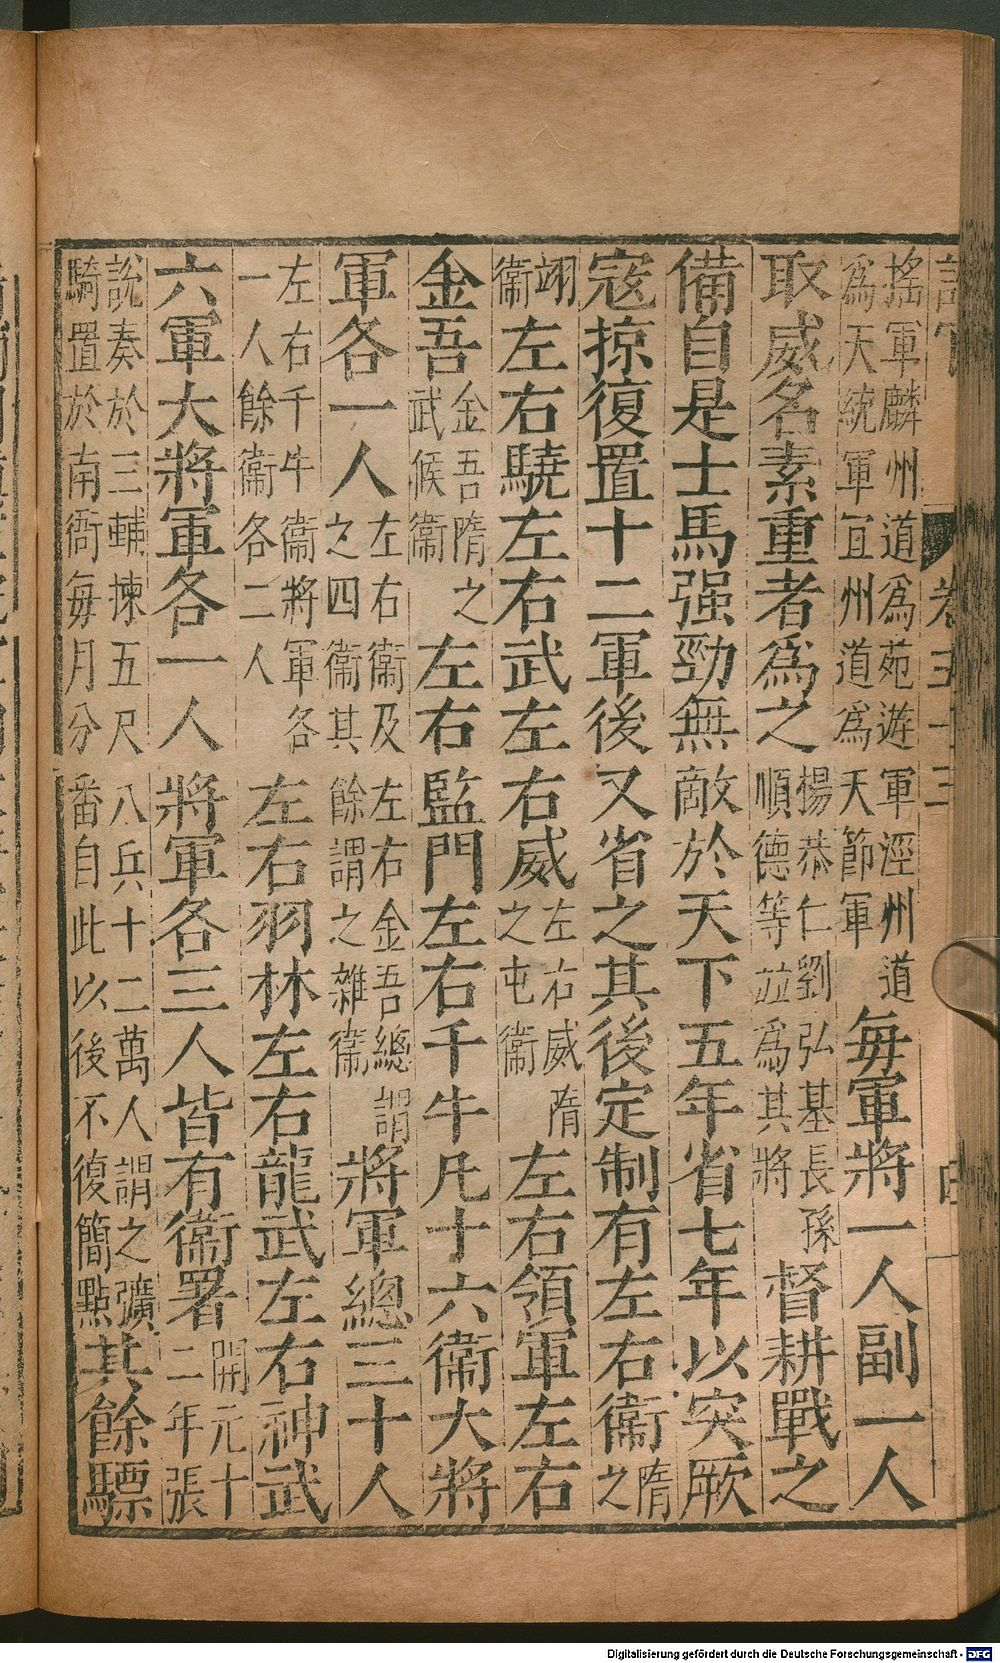 搖軍麟州道為苑遊軍涇州道
為天統軍宜州道為天節軍
每軍將一人副一人
取威名素重者為之
楊恭仁劉弘基長孫
順德等並為其將
督耕戰之
備自是士馬强勁無敵於天下五年省七年以突厥
寇掠復置十二軍後又省之其後定制有左右衞
隋
之
翊
衞
左右驍左右武左右威
左右威隋
之屯衞
左右領軍左右
金吾
金吾隋之
武候衞
左右監門左右千牛凡十六衞大將
軍各一人
左右衞及左右金吾總謂
之四衞其餘謂之雜衞
將軍總三十人
左右千牛衞將軍各
一人餘衞各二人
左右羽林左右龍武左右神武
六軍大將軍各一人將軍各三人皆有衞署
開元十
二年張
說奏於三輔揀五尺八兵十二萬人謂之彍
騎置於南衙每月分番自此以後不復簡點
其餘驃
Digitalisierung gefördert durch die Deutsche Forschungsgemeinschaft - DFG